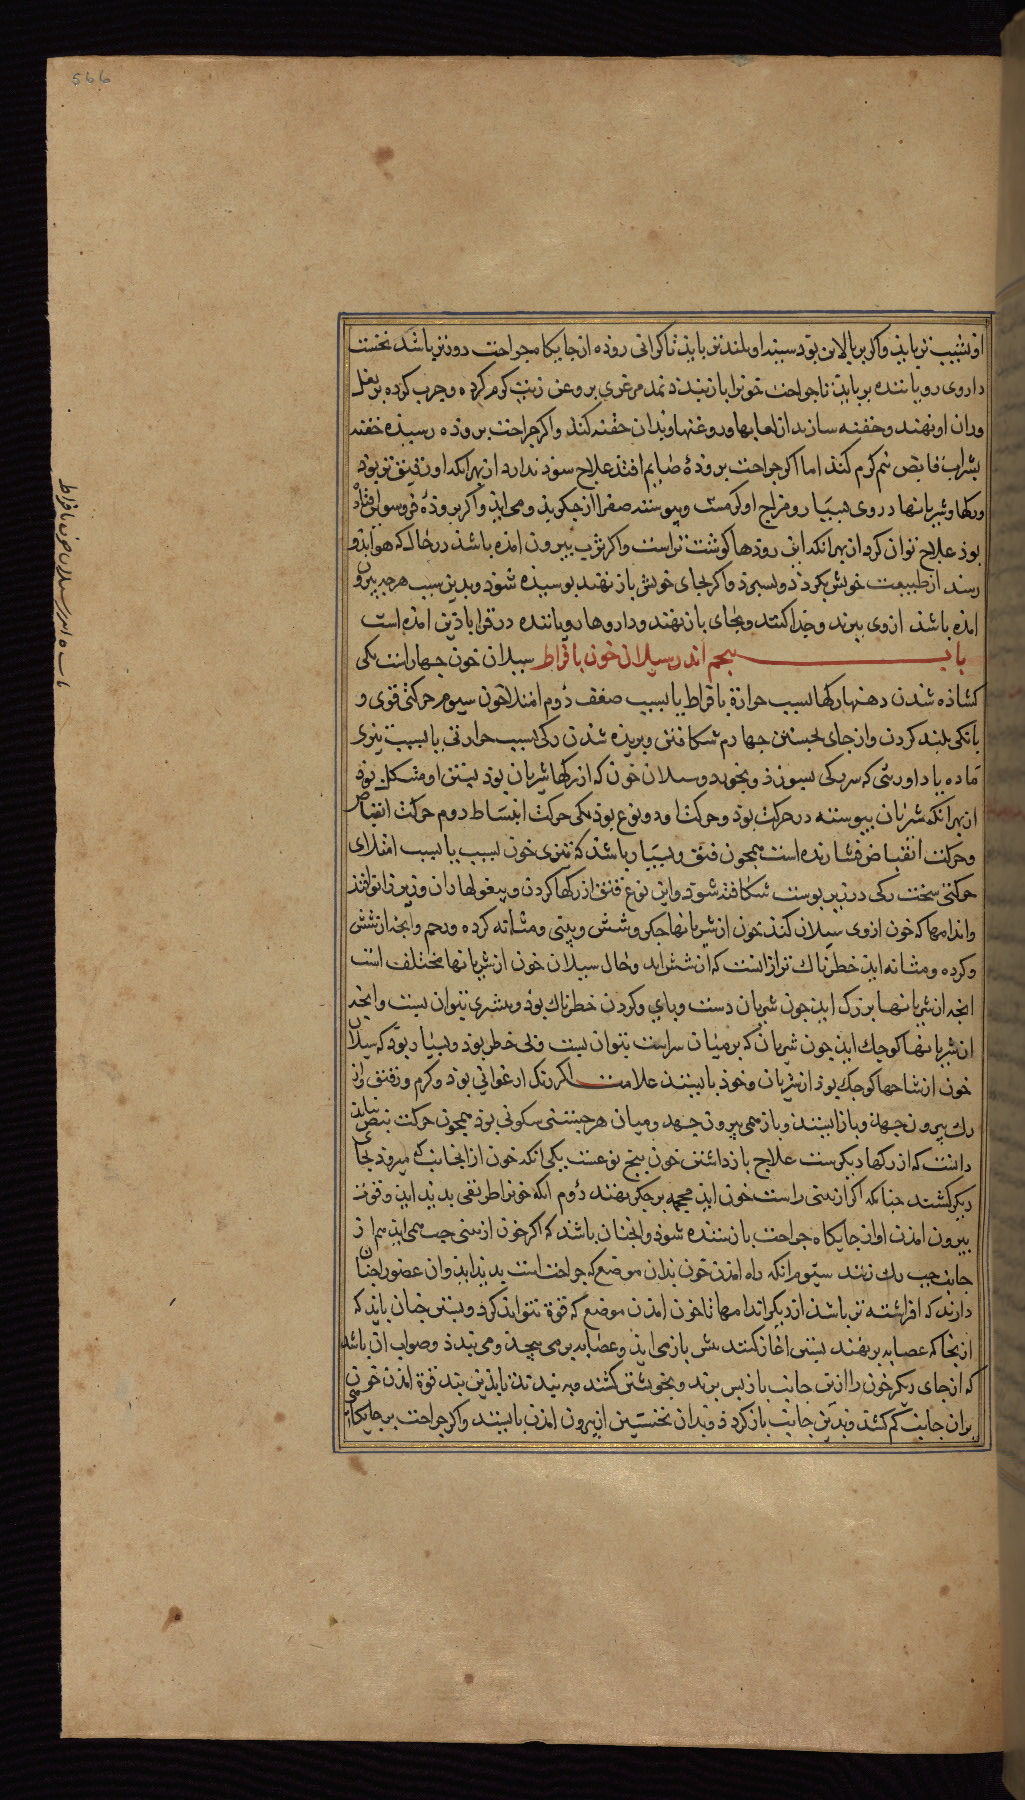 566
او نشیب تر باید واکر بر بالا تر بوذ سینه او بلندتر باید تا کرانی روذه از جایکاه جراحت دورتر باشد نخست
داروی رویاننده بر باید تا جراحت خونرا باز بندد نمد مرغزی بروغن زیت کرم کرده و چرب کرده بر بغل
وران او نهند و حقنه سازند از لعابها و روغنها و بدان حقنه کند واکر جراحت بروده رسیده حقنه
بشراب قابض نیم کرم کنند اما اکر جراحت بروذۀ صایم افتد علاج سوذ ندارد از بهر انکه او رقیق تر بوذ
ورکها و شریانها در وی بسیار و مزاج او کرمست و پیوسته صفرا از جکر بذو می اید واکر بروذۀ فروسو افتاذه
بوذ علاج توان کرد از بهر انکه این روذها کوشت تر است واکر ثرب بیرون امذه باشد در حال که هوا بذو
رسد از طبیعت خویش بکردذ و بسبرذ واکر بجای خویش باز نهند بوسیذه شوذ و بدین سبب هرچه بیرون
امذه باشد ازوی ببرند و جذا کنند و بجای باز نهند و داروها رویاننده در قراباذین امذه است
باب پنجم اندر سیلان خون بافراط سیلان خون چهار است یکی
کشاذه شدن دهنها رکها بسبب حرارة بافراط یا بسبب ضعف دوم امتلا خون سیوم حرکتی قوی و
بانکی بلند کردن و از جای بجستن چهارم شکافتن و بریذه شدن رکی بسبب حرارتی یا بسبب تیزی
ماده یا داوریی که سر رکی بسوزذ و بخورد و سیلان خون که از رکها شریان بوذ بستن او مشکل بوذ
از بهر انکه شریان پیوسته در حرکت بوذ و حرکت او دو نوع بوذ یکی حرکت انبساط دوم حرکت انقباض
و حرکت انقباض فشارنده است همچون فتق و بسیار باشد که تیزی خون بسبب یا بسبب امتلای
حرکتی سخت رکی در زیر پوست شکافته شوذ و این نوع فتق از رکها کردن و پیغولها ران و زیر زانو افتد
واندامها که خون ازوی سیلان کند خون از شریانها جکر و شش و بینی و مثانه کرده و رحم وانچه از شش
وکرده و مثانه ایذ خطرناک تر از انست که از شش اید و حال سیلان خون از شریانها مختلف است
انچه از شریانها بزرک ایذ چون شریان دست و پای و کردن خطرناک بوذ و بیشتری نتوان بست وانچه
از شریانها کوچک ایذ چون شریان که بر میان سراست بتوان بست ولی خطر بوذ و بسیار بوذ که سیلان
خون از شاخها کوچک بوذ از شریان و خوذ باییستد علامت اکر رنک ارغوانی بوذ و کرم و رقیق واز
رک بیرون جهذ و باز ایستد و باز همی بیرون جهد و میان هر جستنی سکونی بوذ همچون حرکت نبض بباید
دانست که از رکها دیکرست علاج باز داشتن خون پنج نوعست یکی انکه خون از انجانب که میروذ بجای
دیکر کشند چنانکه اکر از بینی راست خون ایذ محجمه بر جکر نهند دوم انکه خونرا طریقی بدید ایذ و قوت
بیرون امذن او از جایکاه جراحت باز ستده شوذ و انچنان باشد که اکر خون از بینی چپ همی ایذ هم از
جانب چپ رک زنند سیّوم انکه راه امذن خون بذان موضع که جراحت است بدید اید وان عضو را چنان
دارند که افراشته تر باشد از دیکر اندامها تا خون امذن موضع که قوة نتواند کرد و بستن چنان باید که
از بجا که عصابه بر نهند بستن اغاز کنند بیش باز می اید و عصابه بر می پیچد و می بندذ وصواب ان باشد
که از جای دیکر خون را ازین جانب باز پس برند و بخویشتن کشند و به بندند تا بذین بند قوة امذن خون
بران جانب کم کنند و بدین جانب باز کردذ و بذان نخستین از بیرون امذن باییستد واکر جراحت بر جایکاهی
باب ه اندر سیلان خون بافراط